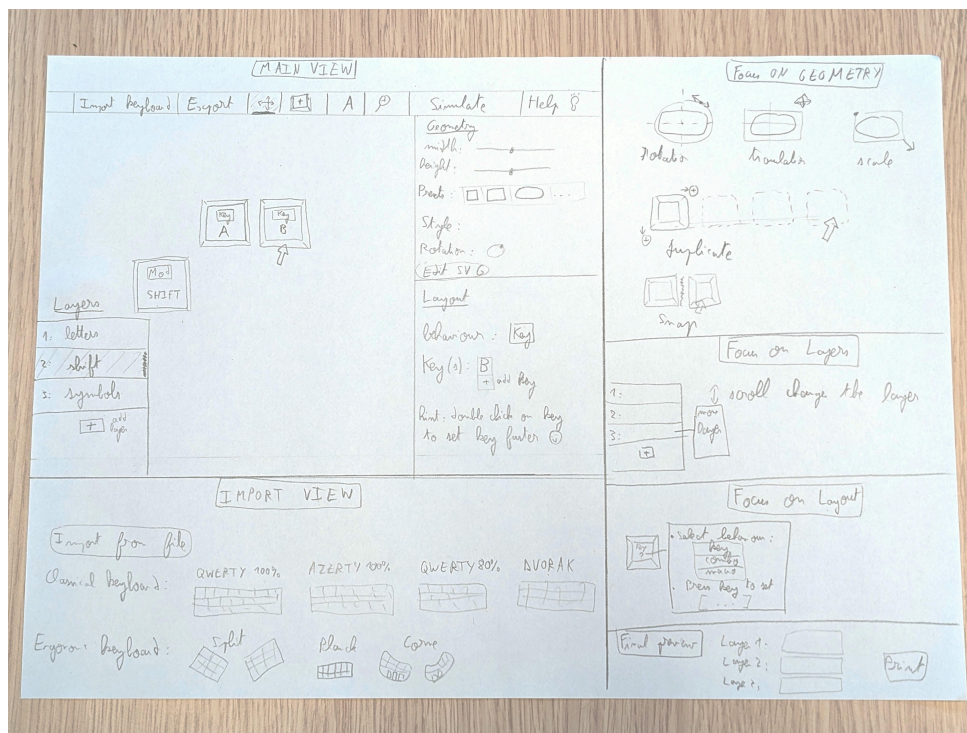 MAIN VIEW
Import keyboard Export + A Simulate Help
Geometry
width:
height:
Presets: ...
Style:
Rotation:
Edit SVG
Key
A
Key
B
Mod
SHIFT
Layers
1: letters
2: shift
3: symbols
+ add layer
Layout
behaviour: Key
Key(s): B
+ add key
hint: double click on key
to set key fater
IMPORT VIEW
Import from file
Classical keyboard:
QWERTY 100% AZERTY 100% QWERTY 80% DVORAK
Ergonomic keyboard:
Split Planck Corne
Focus ON GEOMETRY
Rotation translation scale
duplicate
Snap
Focus on Layers
1:
2:
3:
+
move
layer
scroll change the layer
Focus on Layout
Key
?
• Select behaviour:
key
combo
macro
• Press key to set
[...]
Final preview
Layer 1:
Layer 2:
Layer 3:
Print